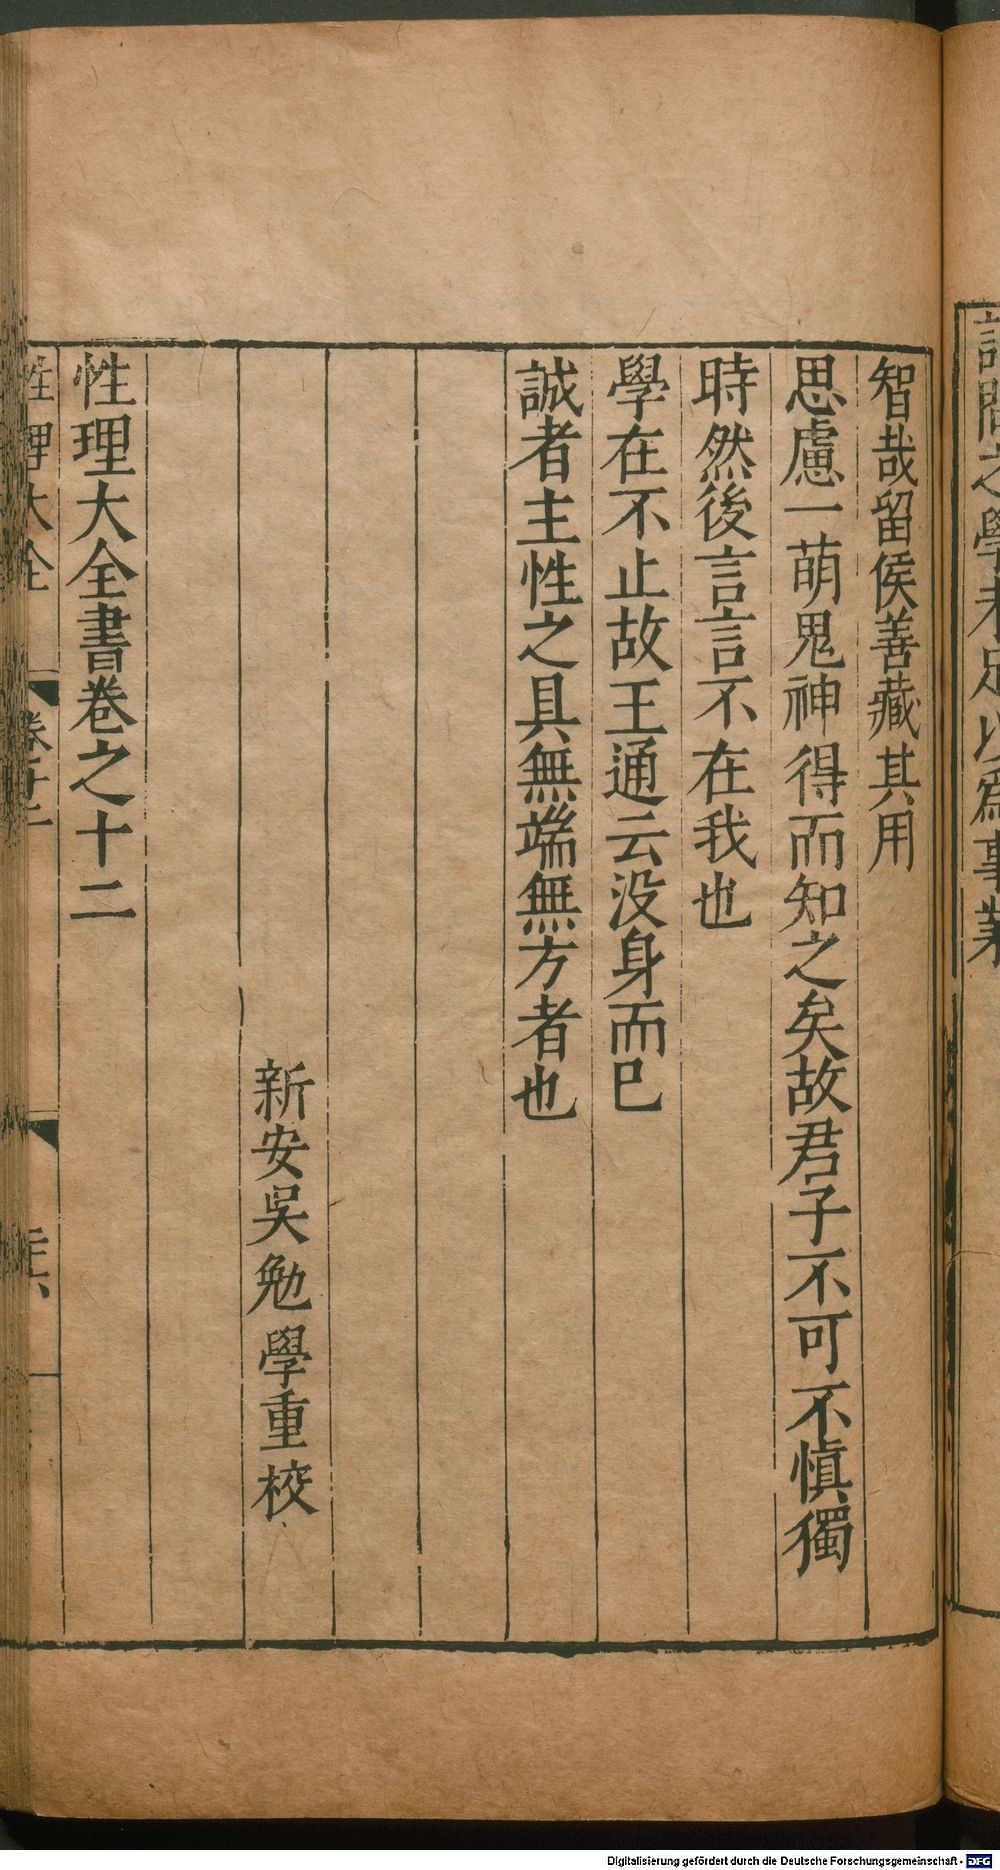 記問之學未足以爲事業
智哉留侯善藏其用
思慮一萌鬼神得而知之矣故君子不可不慎獨
時然後言言不在我也
學在不止故王通云没身而已
誠者主性之具無端無方者也
新安吳勉學重校
性理大全書卷之十二
性理大全
卷十二
Digitalisierung gefördert durch die Deutsche Forschungsgemeinschaft - DFG